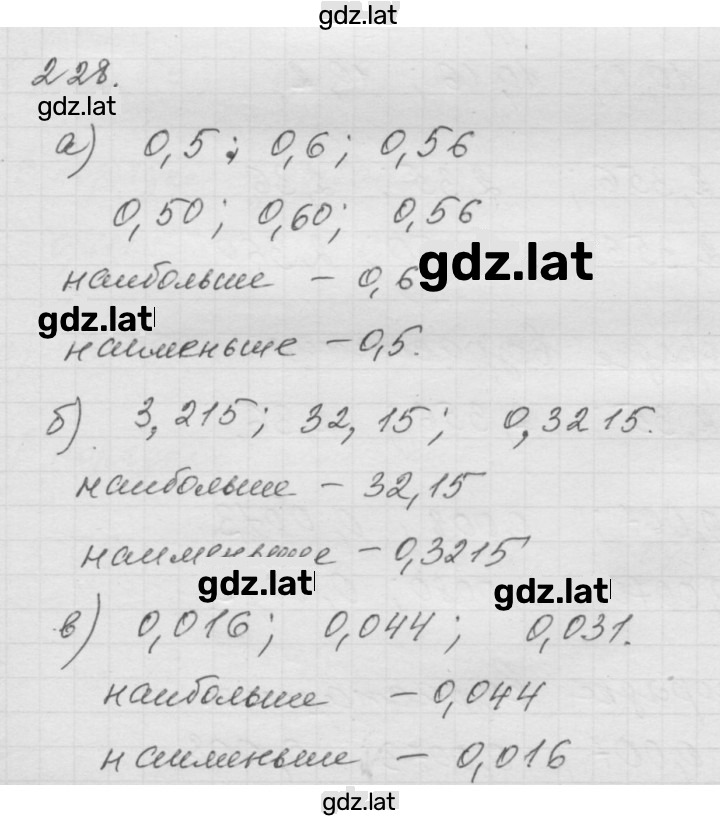 gdz.lat
228.
gdz.lat
а) 0,5; 0,6; 0,56
0,50; 0,60; 0,56
наибольше - 0,6
gdz.lat
gdz.lat
наименьше - 0,5.
б) 3,215; 32,15; 0,3215.
наибольше - 32,15
наименьшее - 0,3215
gdz.lat
gdz.lat
в) 0,016; 0,044; 0,031.
наибольше - 0,044
наименьше - 0,016
gdz.lat